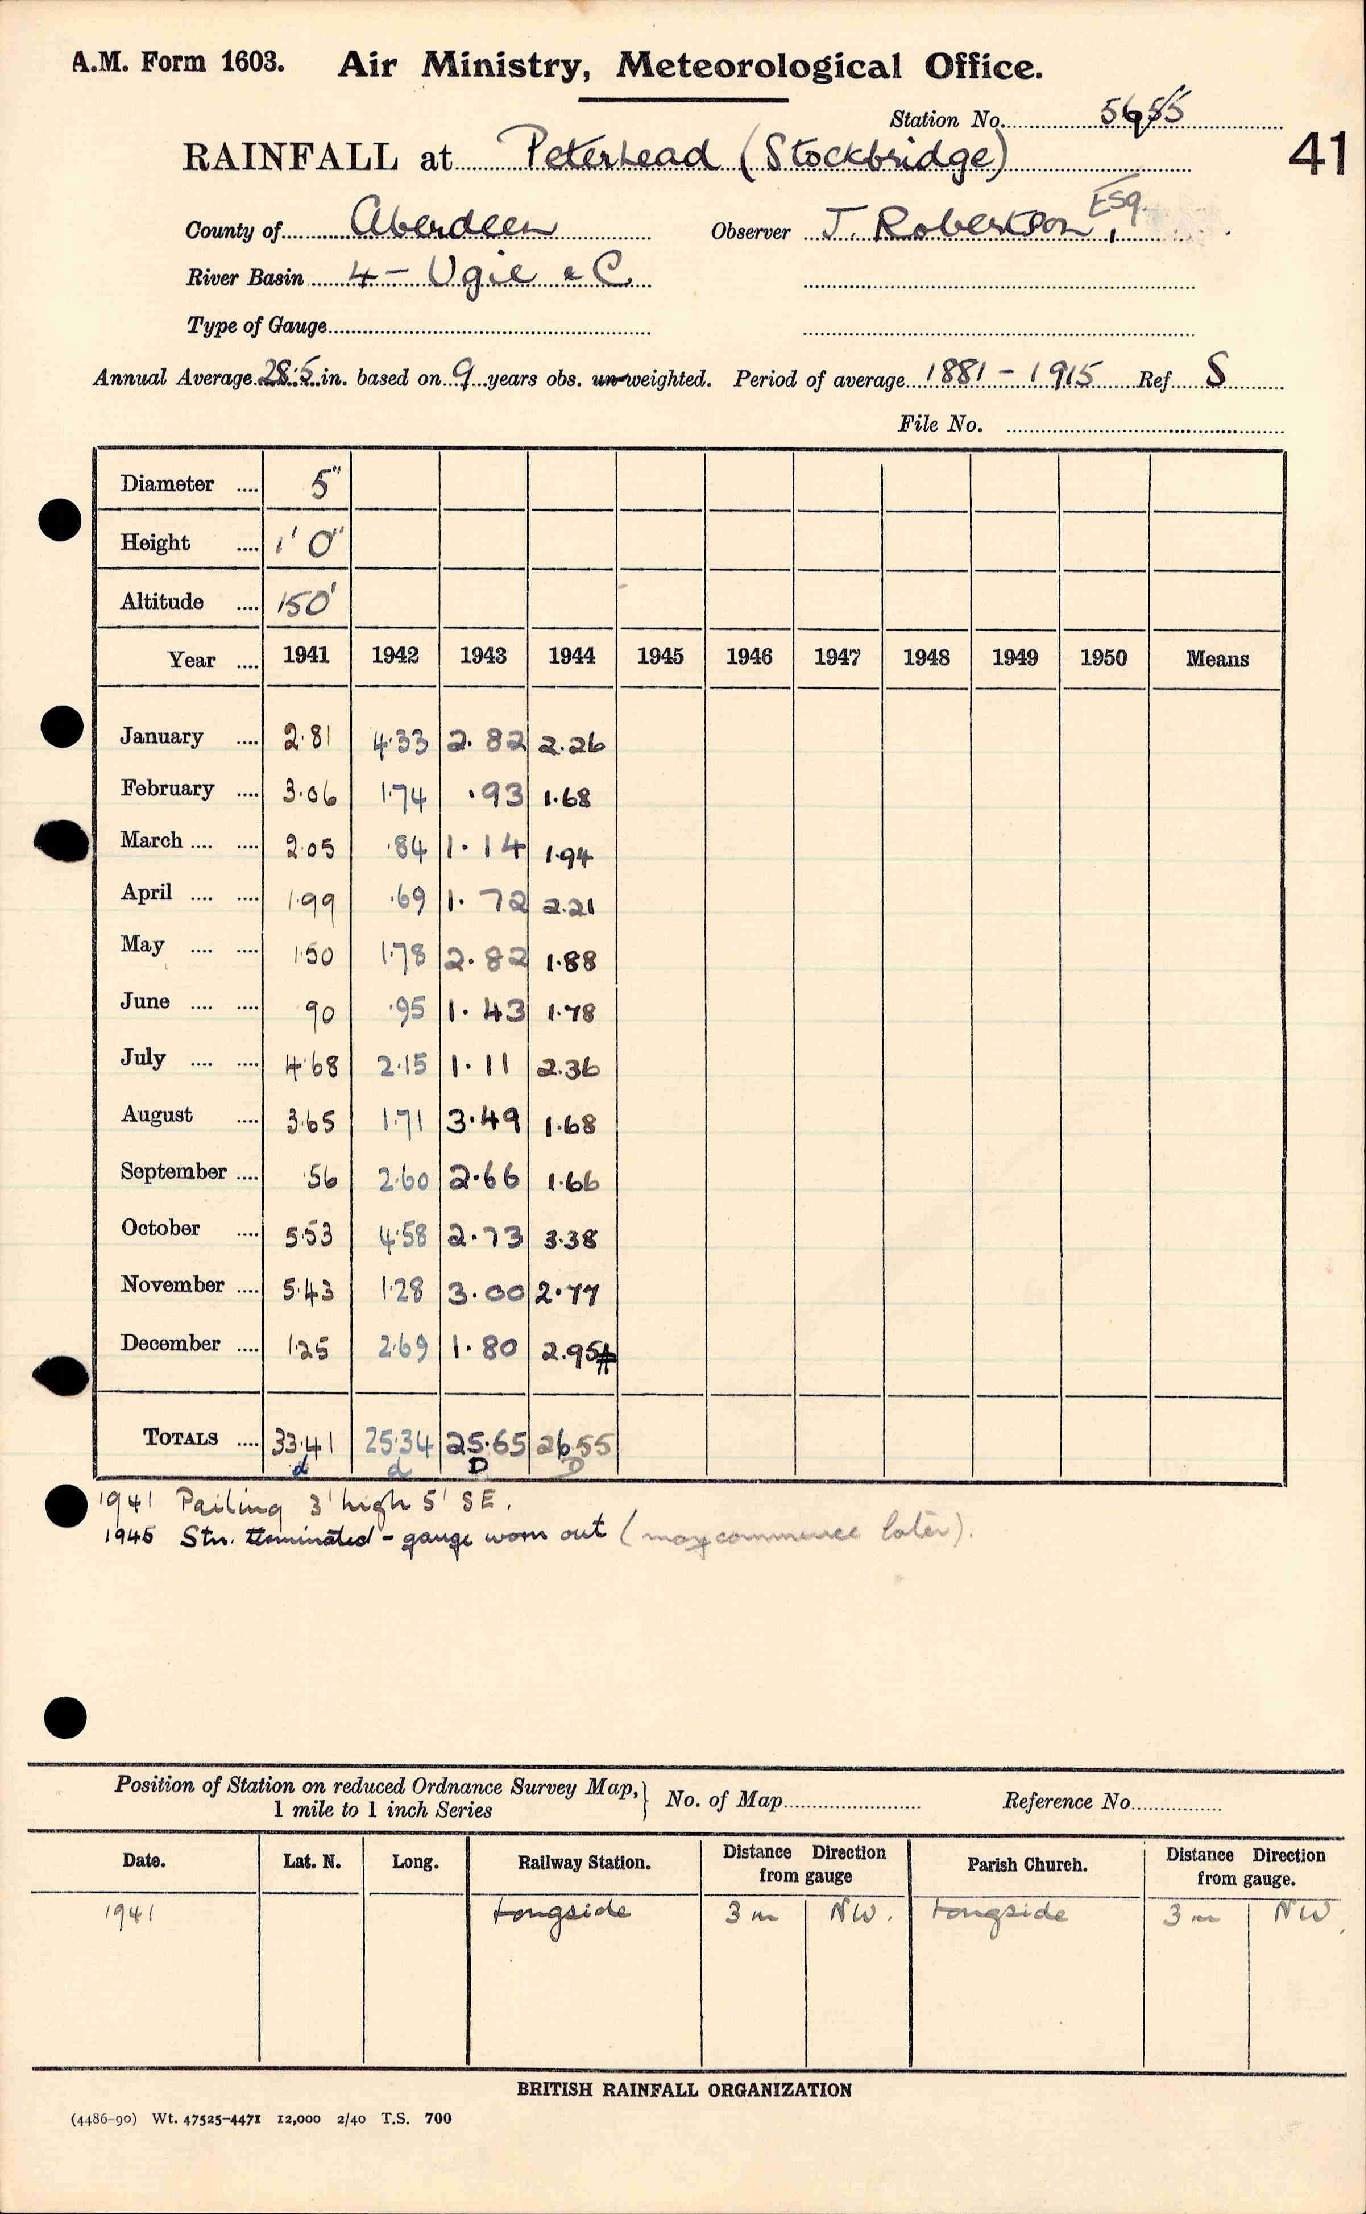 A.M. Form 1603. Air Ministry, Meteorological Office.
Station No. 5655
RAINFALL at Peterhead (Stockbridge) 41
County of Aberdeen Observer J. Robertson, Esq.
River Basin 4 - Ugie & C
Type of Gauge
Annual Average 28.5 in. based on 9 years obs. un-weighted. Period of average 1881 - 1915 Ref S
File No.
Diameter .... 5"
Height .... 1' 0"
Altitude .... 150'
Year .... 1941 1942 1943 1944 1945 1946 1947 1948 1949 1950 Means
January .... 2.81 4.33 2.82 2.26
February .... 3.06 1.74 .93 1.68
March .... .... 2.05 .84 1.14 1.94
April .... .... 1.99 .69 1.72 2.21
May .... .... 1.50 1.78 2.82 1.88
June .... .... 90 .95 1.43 1.78
July .... .... 4.68 2.15 1.11 2.36
August .... 3.65 1.71 3.49 1.68
September .... .56 2.60 2.66 1.66
October .... 5.53 4.58 2.73 3.38
November .... 5.43 1.28 3.00 2.77
December .... 1.25 2.69 1.80 2.95#
TOTALS .... 33.41 25.34 25.65 26.55
d d D D
1941 Pailing 3' high 5' SE.
1945 Stn. terminated - gauge worn out (may commence later).
Position of Station on reduced Ordnance Survey Map, } No. of Map Reference No.
1 mile to 1 inch Series
Date. Lat. N. Long. Railway Station. Distance Direction from gauge Parish Church. Distance Direction from gauge.
1941 Longside 3 m NW. Longside 3 m NW.
BRITISH RAINFALL ORGANIZATION
(4486-90) Wt. 47525-4471 12,000 2/40 T.S. 700